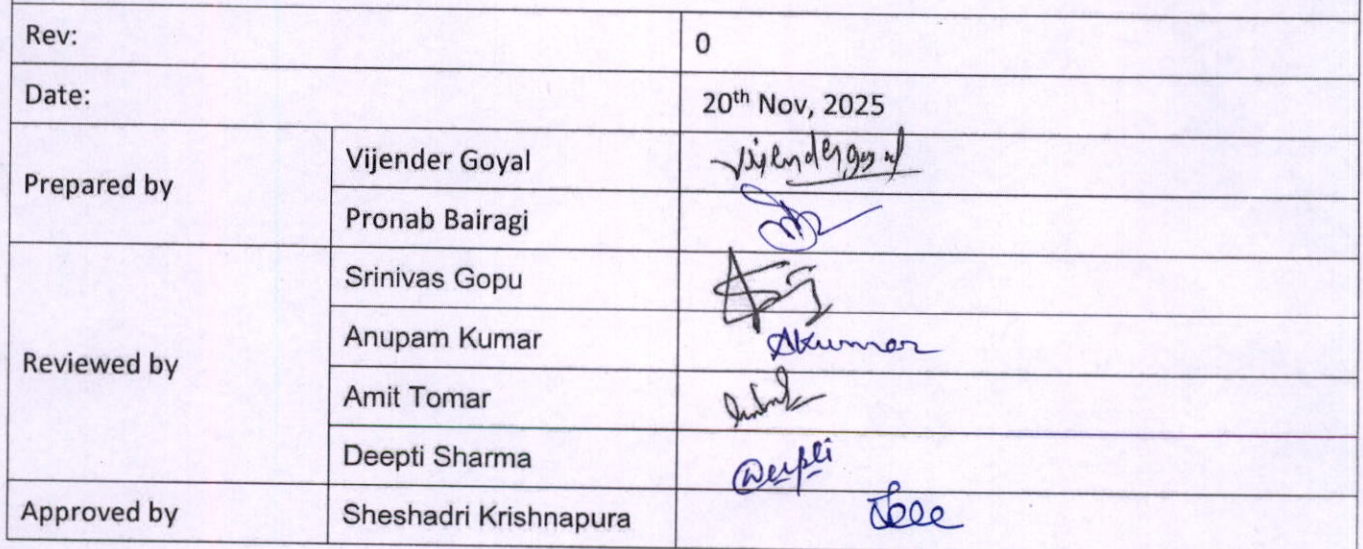 Rev: 0
Date: 20th Nov, 2025
Prepared by
Vijender Goyal Vijendergoyal
Pronab Bairagi
Srinivas Gopu
Reviewed by
Anupam Kumar AKumar
Amit Tomar
Deepti Sharma Deepti
Approved by Sheshadri Krishnapura